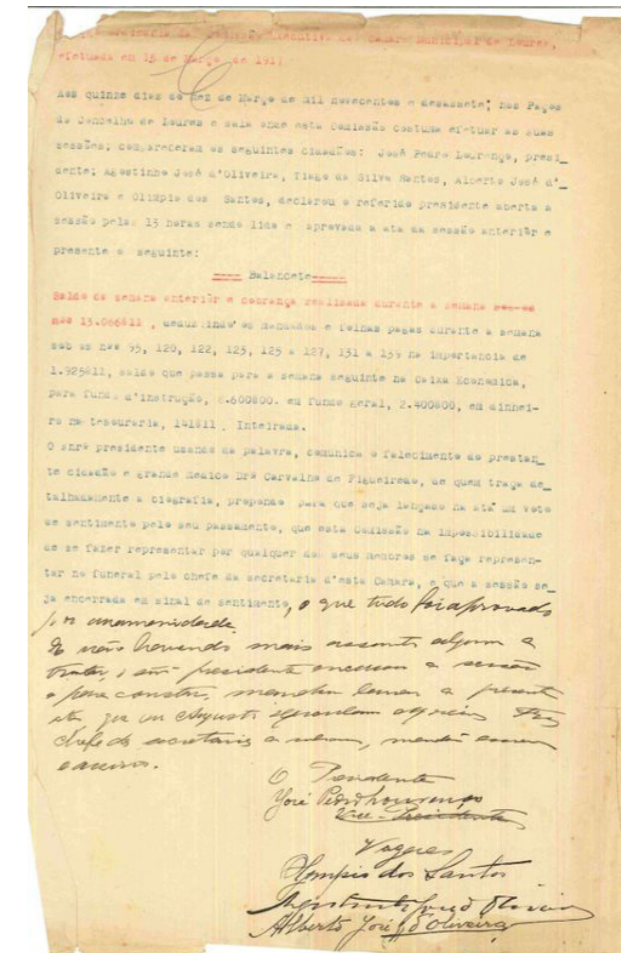 da Comissão Executiva da Camara Municipal de Loures,
efetuada em 15 de Março de 1917
Aos quinze dias do mez de Março de mil novecentos e desassete; nos Paços
do Concelho de Loures e sala onde esta Comissão costuma efetuar as suas
sessões; compareceram os seguintes cidadãos: José Pedro Lourenço, presi_
dente; Agostinho José d'Oliveira, Tiago da Silva Santos, Alberto José d'_
Oliveira e Olimpio dos Santos, declarou o referido presidente aberta a
sessão pelas 13 horas sendo lida e aprovada a ata da sessão anteriôr e
presente o seguinte:
==== Balancete=====
Saldo da semana anteriôr e cobrança realisada durante a semana
13.066$11 , deduzindo os mandados e folhas pagas durante a semana
sob os nos 95, 120, 122, 123, 125 a 127, 131 a 139 na importancia de
1.925$11, saldo que passa para a semana seguinte na Caixa Economica,
para fundo d'instrução, 8.600$00. em fundo geral, 2.400$00, em dinhei-
ro na tesouraria, 141$11 . Inteirada.
O snrº presidente usando da palavra, comunica o falecimento do prestan_
te cidadão e grande medico Drº Carvalho de Figueiredo, de quem traça de_
talhadamente a biografia, propondo para que seja lançado na ata um voto
de sentimento pelo seu passamento, que esta Comissão na impossibilidade
de se fazer representar por qualquer dos seus membros se faça represen-
tar no funeral pelo chefe da secretaria d'esta Camara, e que a sessão se_
ja encerrada em sinal de sentimento, o que tudo foi aprovado
por unanimidade.
E não havendo mais assunto algum a
tratar, o snr presidente encerrou a sessão
e para constar, mandou lavrar a presente
ata que eu Augusto
chefe da secretaria a
e assino.
O Presidente
José Pedro Lourenço
Vice-Presidente
Vogaes
Olimpio dos Santos
Agostinho José d'Oliveira
Alberto José d'Oliveira